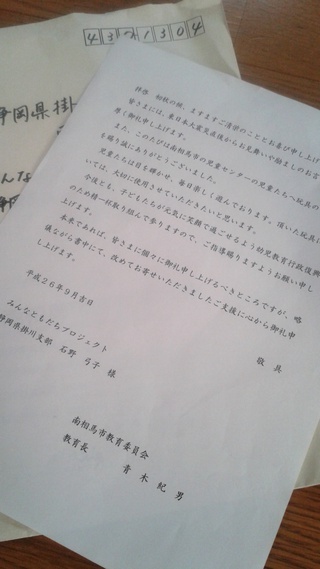 4371304
静岡県掛
んな
静岡
拝啓　初秋の候、ますますご清栄のこととお喜び申し上げ
皆さまには、東日本大震災直後からお見舞いや励ましのお言
厚く御礼申し上げます。
また、このたびは南相馬市の児童センターの児童たちへ玩具の
を賜り誠にありがとうございました。
児童たちは目を輝かせ、毎日楽しく遊んでおります。頂いた玩具に
いては、大切に使用させていただきたいと思います。
今後とも、子どもたちが元気に笑顔で過ごせるよう幼児教育行政復興
のため精一杯取り組んで参りますので、ご指導賜りますようお願い申し
上げます。
本来であれば、皆さまに個々に御礼申し上げるべきところですが、略
儀ながら書中にて、改めてお寄せいただきましたご支援に心から御礼申
し上げます。
敬具
平成26年9月吉日
みんなともだちプロジェクト
静岡県掛川支部　石野　弓子　様
南相馬市教育委員会
教育長　青木　紀男